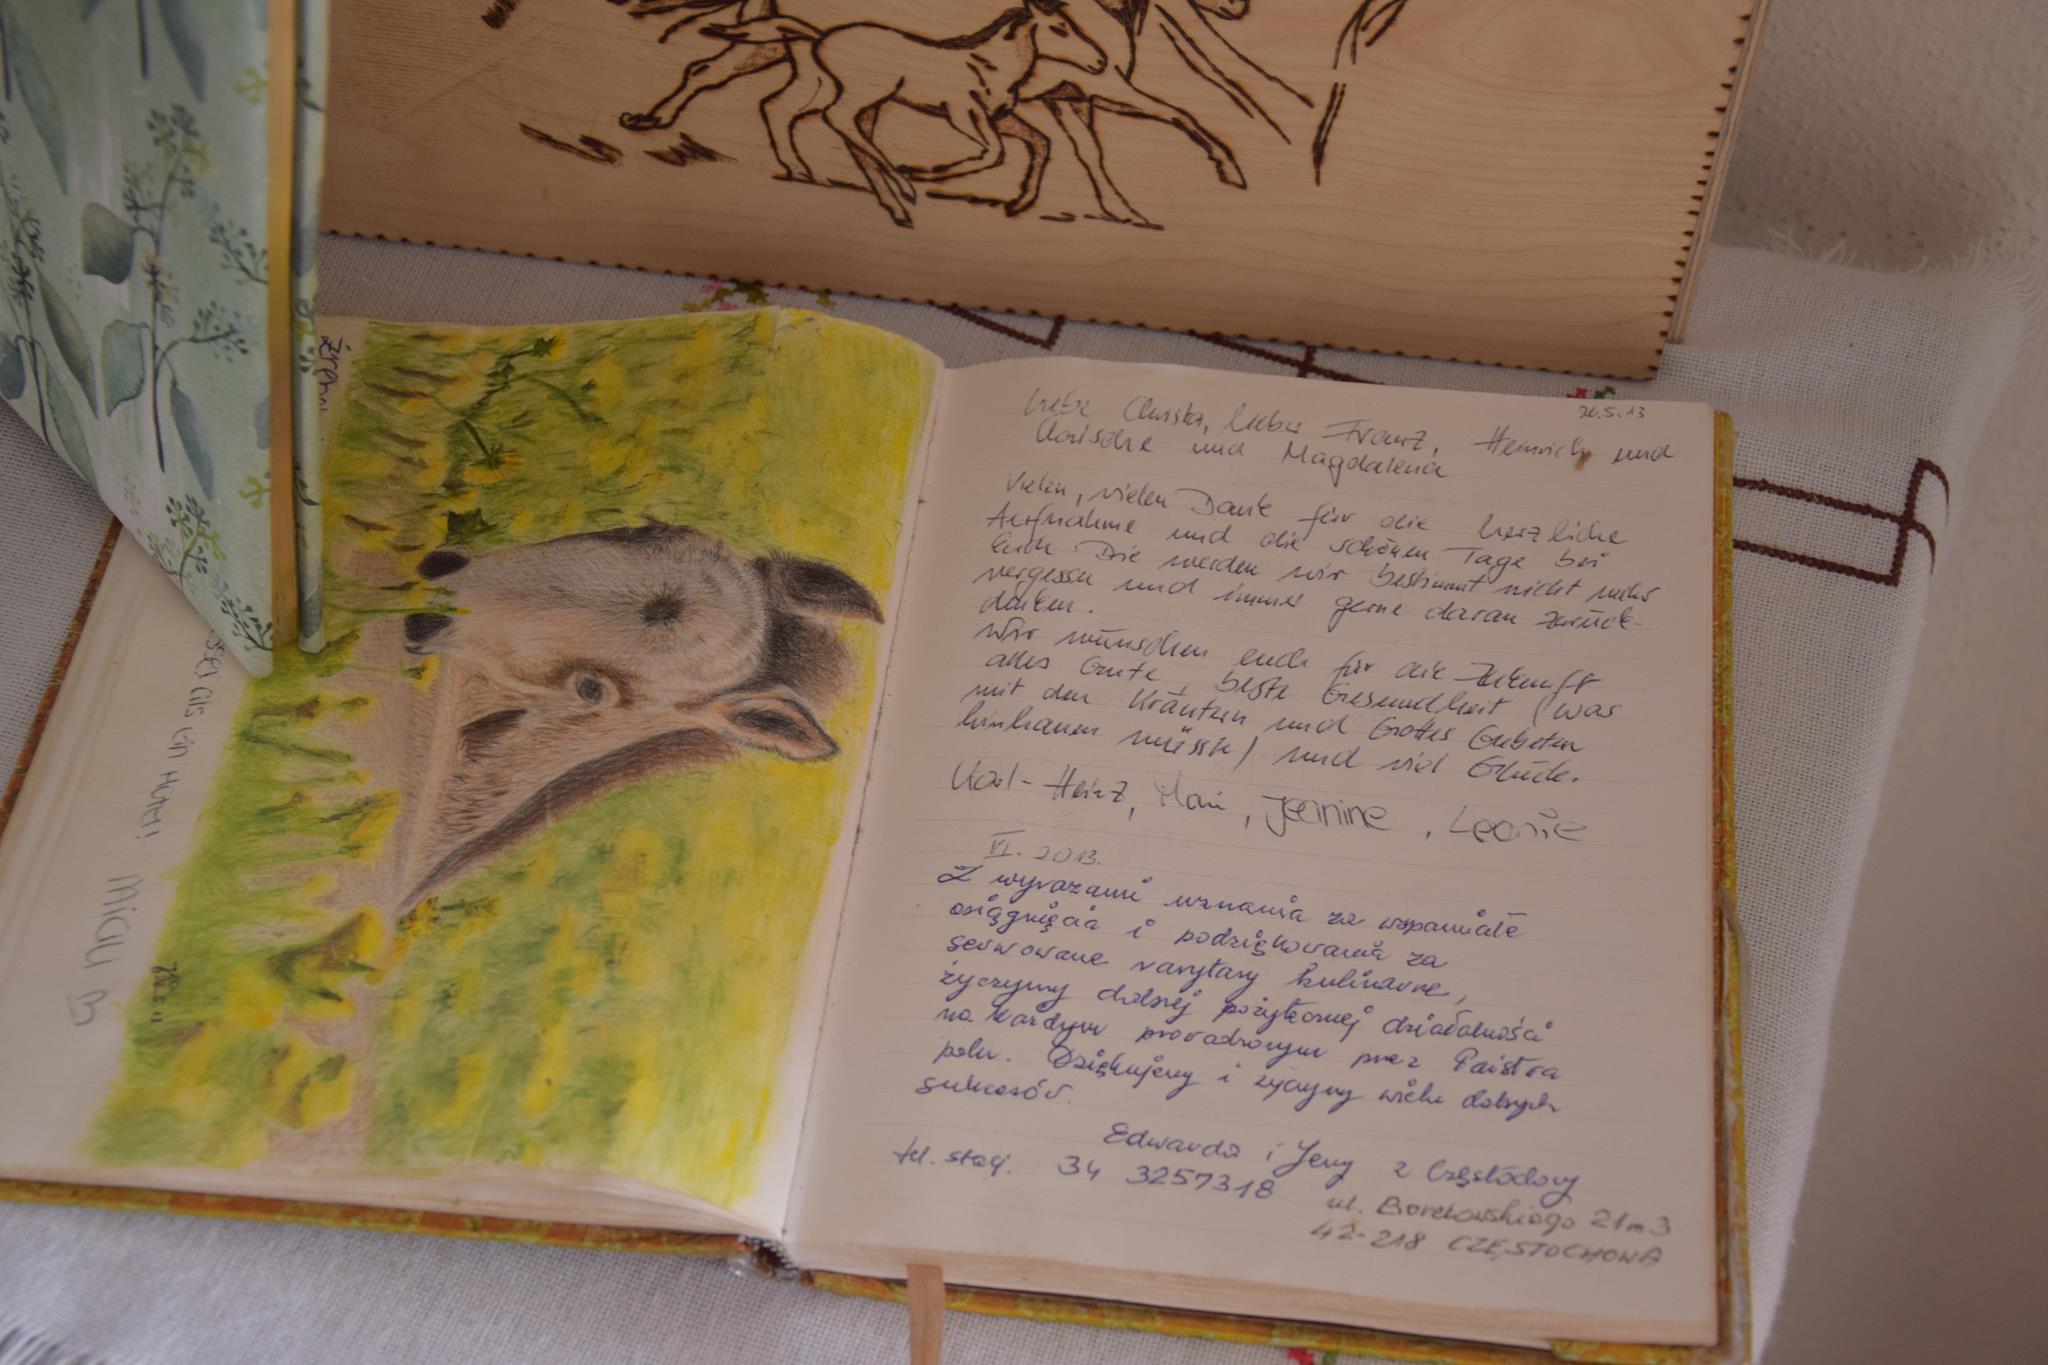 Żreb
sser als ein Hotel!
Miau B
26.5.13
Liebe Christa, lieber Franz, Heinrich und
und Magdalena
Vielen, vielen Dank für die herzliche
Aufnahme und die schönen Tage bei
Euch. Die werden wir bestimmt nicht mehr
vergessen und immer gerne daran zurück-
denken.
Wir wünschen euch für die Zukunft
alles Gute, beste Gesundheit (was
mit den Kräutern und Gottes Gebeten
hinhauen müsste) und viel Glück.
Karl-Heinz, Jeanine, Leonie
VI. 2013.
Z wyrazami uznania za wspaniałe
osiągnięcia i podziękowania za
serwowane rarytasy kulinarne,
życzymy dalszej pożytecznej działalności
na każdym prowadzonym przez Państwa
polu. Dziękujemy i życzymy wielu dalszych
sukcesów.
Edwarda i Jerzy z Częstochowy
tel. stacj. 34 3257318
ul. Borelowskiego 21 m 3
42-218 CZĘSTOCHOWA